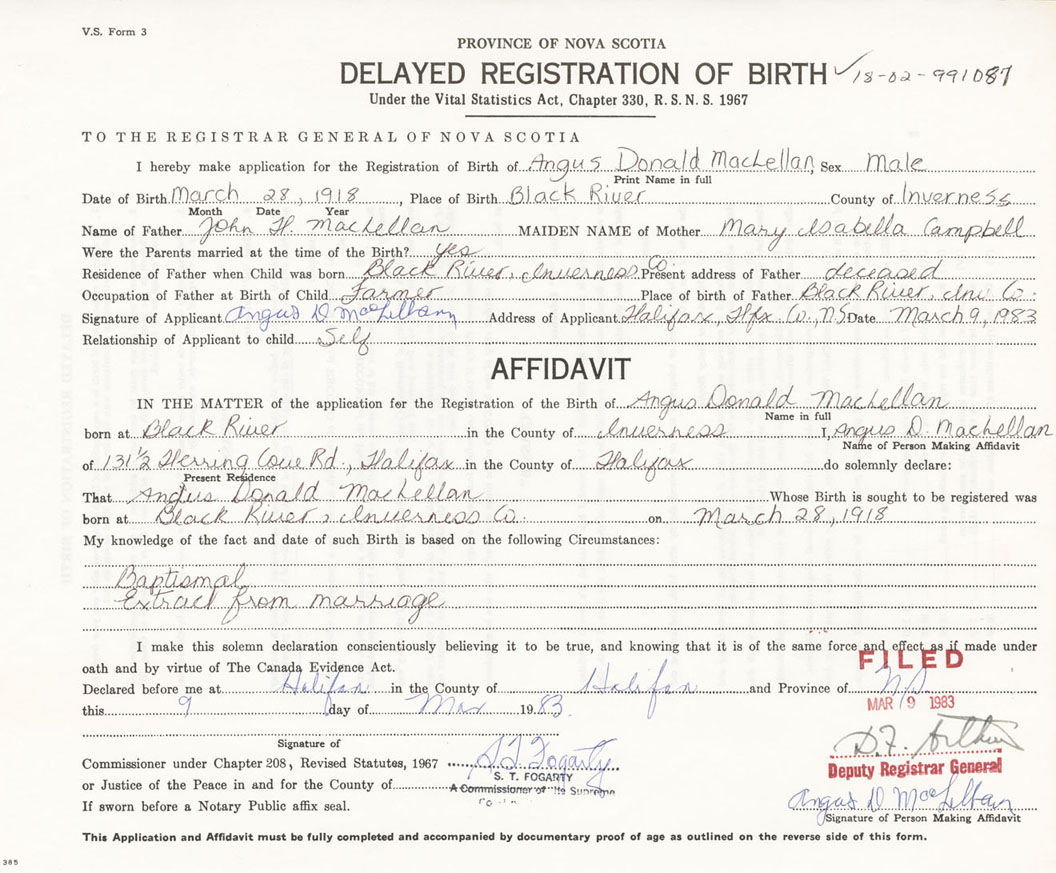 V.S. Form 3
PROVINCE OF NOVA SCOTIA
DELAYED REGISTRATION OF BIRTH ✓ 18-02-991087
Under the Vital Statistics Act, Chapter 330, R.S.N.S. 1967
TO THE REGISTRAR GENERAL OF NOVA SCOTIA
I hereby make application for the Registration of Birth of Angus Donald MacLellan, Sex Male
Print Name in full
Date of Birth March 28, 1918, Place of Birth Black River County of Inverness
Month Date Year
Name of Father John H. MacLellan MAIDEN NAME of Mother Mary Isabella Campbell
Were the Parents married at the time of the Birth? yes
Residence of Father when Child was born Black River, Inverness Co. Present address of Father deceased
Occupation of Father at Birth of Child Farmer Place of birth of Father Black River, Inv. Co.
Signature of Applicant Angus D MacLellan Address of Applicant Halifax, Hfx Co., NS Date March 9, 1983
Relationship of Applicant to child Self
AFFIDAVIT
IN THE MATTER of the application for the Registration of the Birth of Angus Donald MacLellan
Name in full
born at Black River in the County of Inverness I, Angus D. MacLellan
Name of Person Making Affidavit
of 131 1/2 Herring Cove Rd., Halifax in the County of Halifax do solemnly declare:
Present Residence
That Angus Donald MacLellan Whose Birth is sought to be registered was
born at Black River, Inverness Co. on March 28, 1918
My knowledge of the fact and date of such Birth is based on the following Circumstances:
Baptismal
Extract from marriage
I make this solemn declaration conscientiously believing it to be true, and knowing that it is of the same force and effect as if made under
oath and by virtue of The Canada Evidence Act.
FILED
Declared before me at Halifax in the County of Halifax and Province of NS
MAR 9 1983
this 9 day of Mar 1983.
Signature of
D.F. Arthur
Commissioner under Chapter 208, Revised Statutes, 1967 S T Fogarty
Deputy Registrar General
S. T. FOGARTY
or Justice of the Peace in and for the County of A Commissioner of the Supreme
Angus D MacLellan
If sworn before a Notary Public affix seal.
Signature of Person Making Affidavit
This Application and Affidavit must be fully completed and accompanied by documentary proof of age as outlined on the reverse side of this form.
385